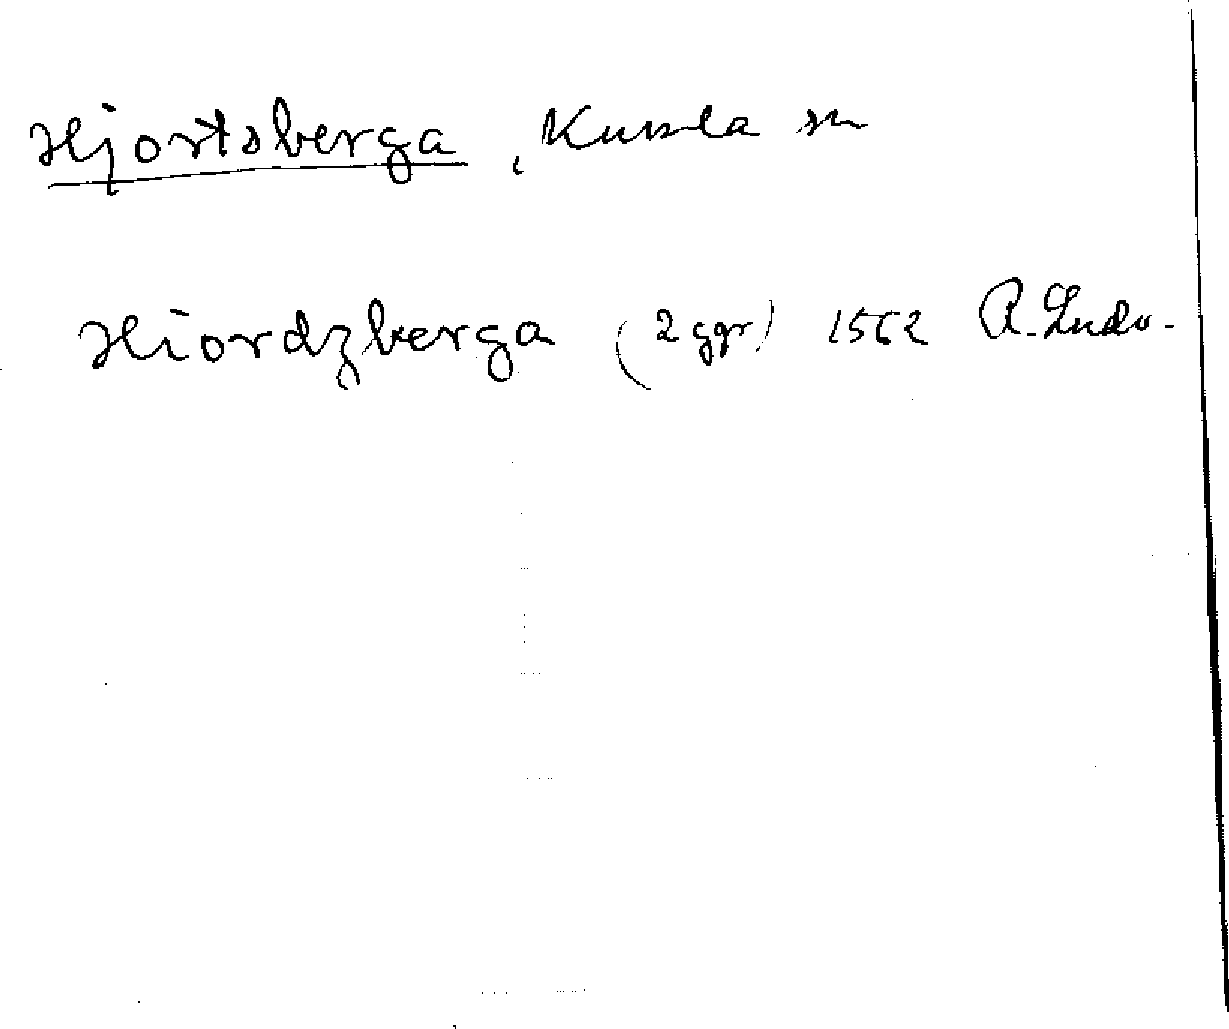 Hjortsberga, Kumla sn
Hiordzberga (2 ggr) 1562 R. Ludv.